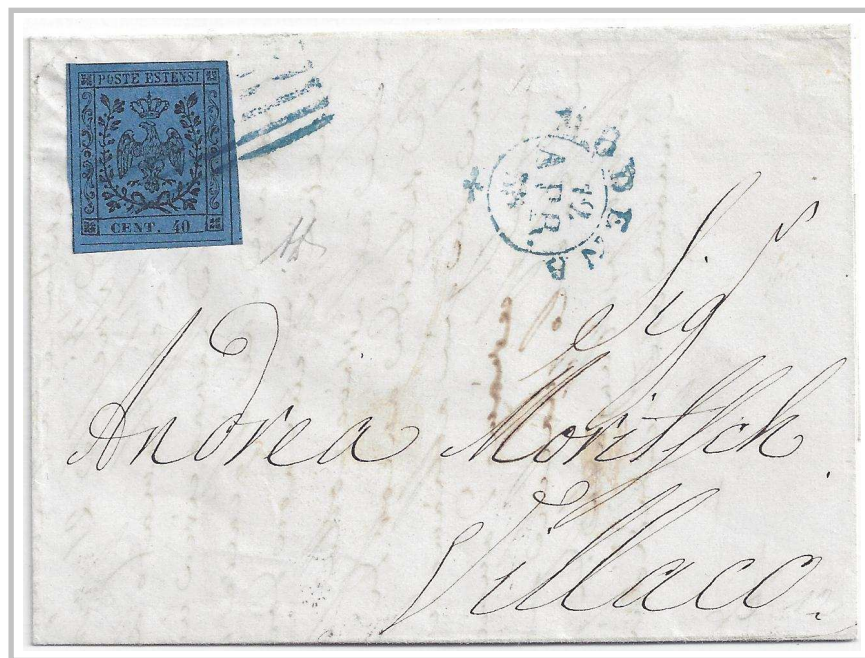 POSTE ESTENSI
CENT. 40
MODENA
12
APR.
Sig
Andrea Moritsch
Villaco.